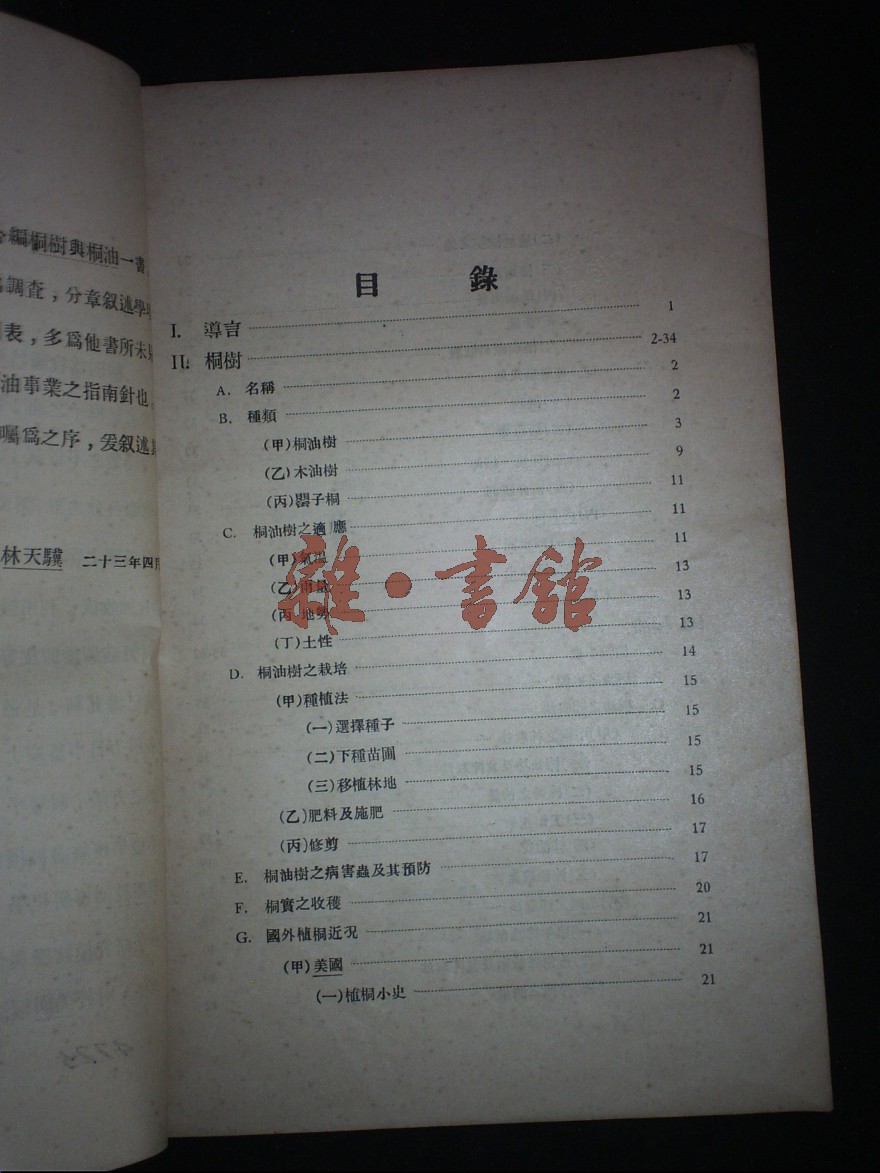 編桐樹與桐油一書
調查，分章叙述學
表，多爲他書所未
油事業之指南針也
囑爲之序，爰叙述
林天驥 二十三年四
目 錄
I. 導言 1
II. 桐樹 2-34
A. 名稱 2
B. 種類 2
(甲)桐油樹 3
(乙)木油樹 9
(丙)罌子桐 11
C. 桐油樹之適應 11
(甲)氣溫 11
(乙)雨量 13
(丙)地勢 13
(丁)土性 13
D. 桐油樹之栽培 14
(甲)種植法 15
(一)選擇種子 15
(二)下種苗圃 15
(三)移植林地 15
(乙)肥料及施肥 16
(丙)修剪 17
E. 桐油樹之病害蟲及其預防 17
F. 桐實之收穫 20
G. 國外植桐近況 21
(甲)美國 21
(一)植桐小史 21
雜·書館